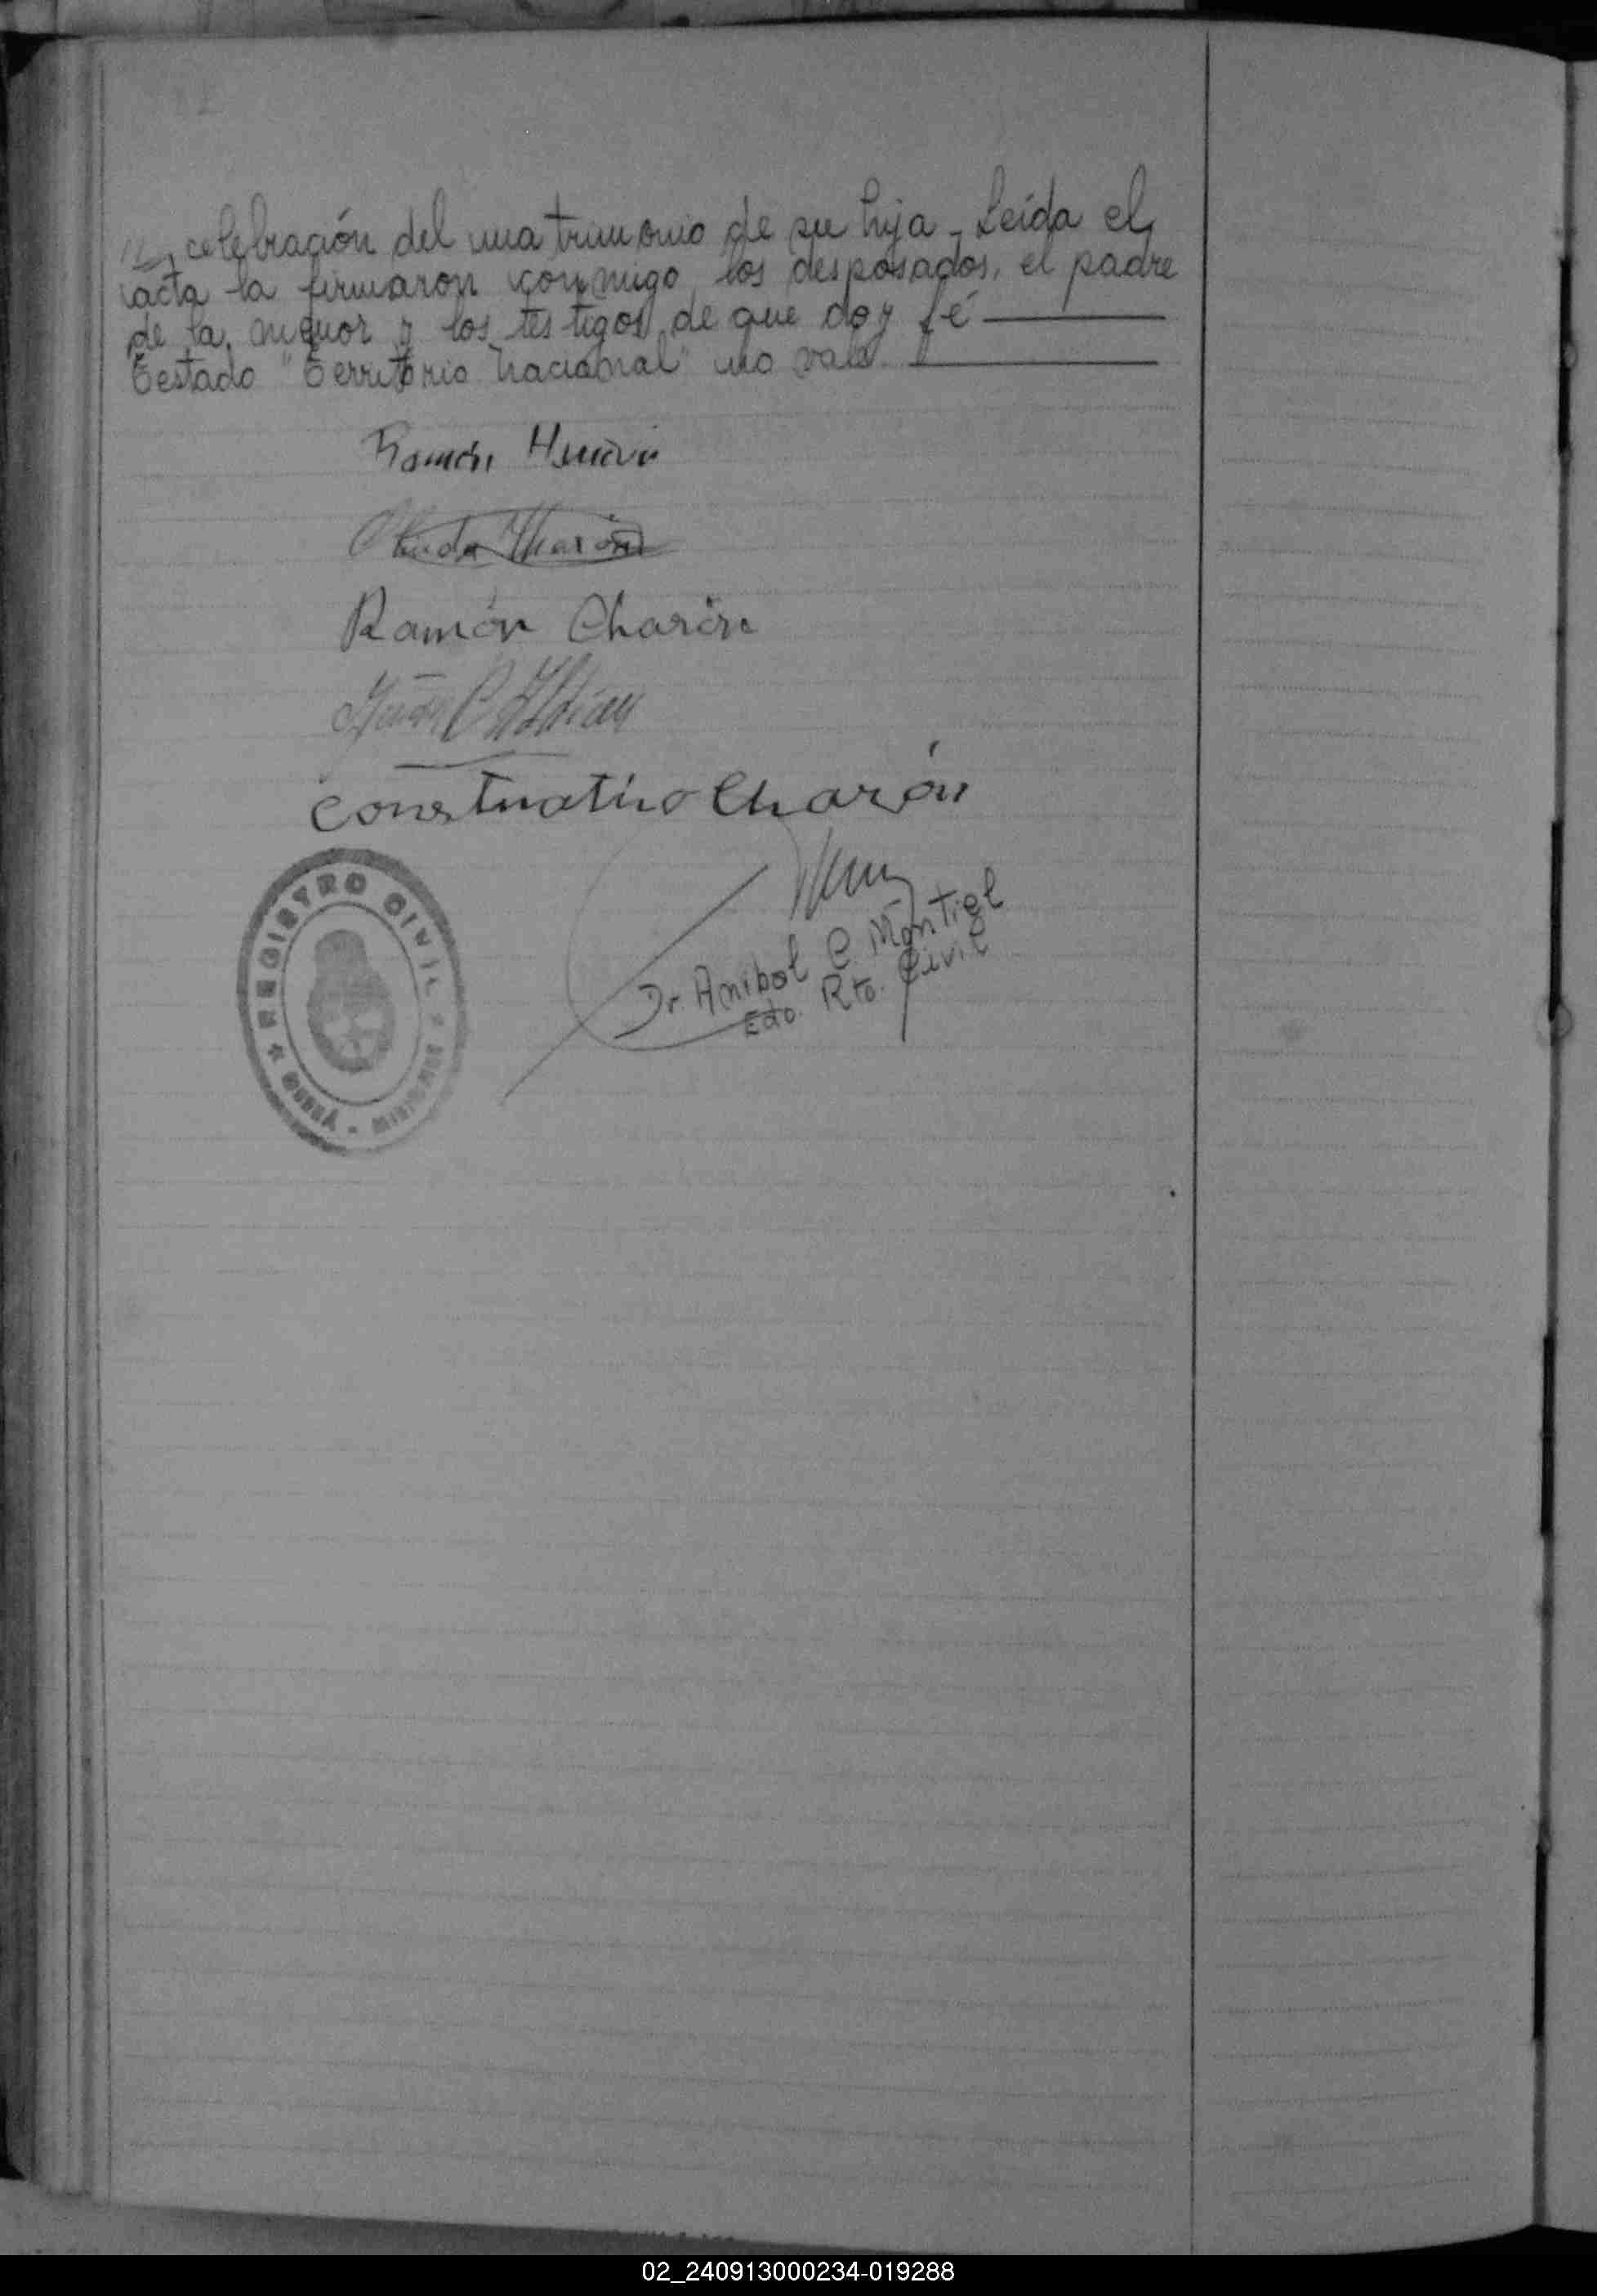 celebración del matrimonio de su hija - Leída el
acta la firmaron conmigo los desposados, el padre
de la menor y los testigos de que doy fé
Testado "Territorio Nacional" no vale.
Ramón
Ramón Charón
Juan C.
Constnatino Charón
REGISTRO CIVIL
MISIONES
Dr. Anibal C. Montiel
Edo. Rto. Civil
02_240913000234-019288